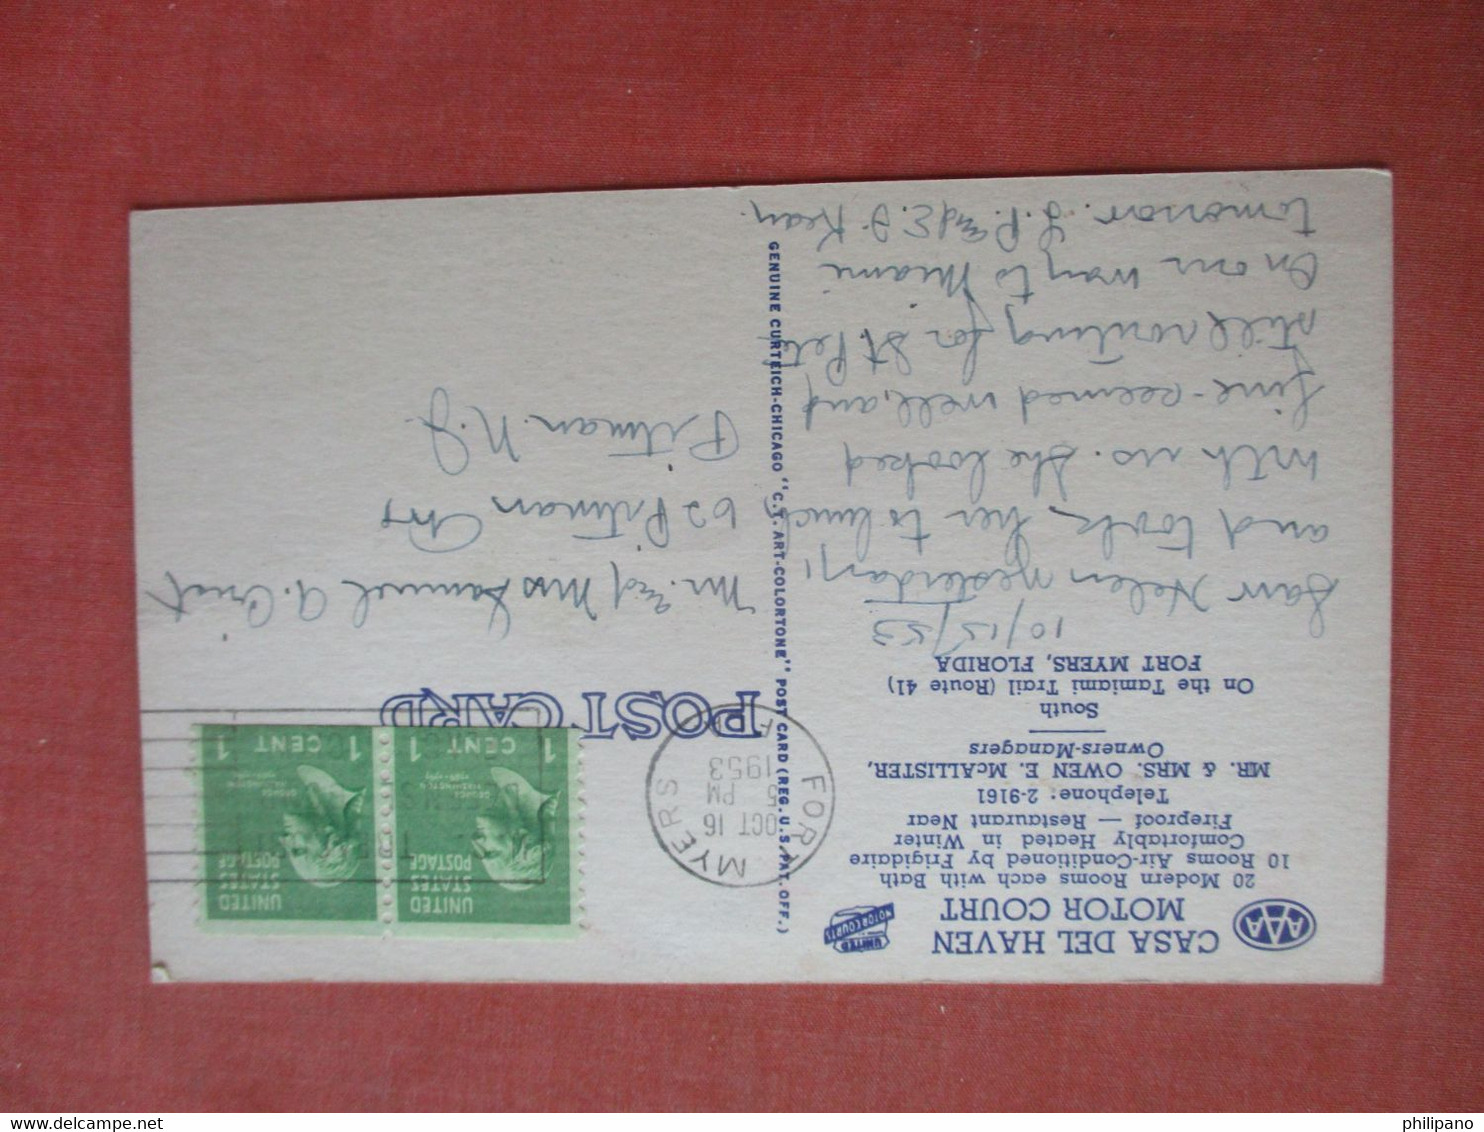 AAA
CASA DEL HAVEN
MOTOR COURT
UNITED
MOTOR COURTS
20 Modern Rooms each with Bath
10 Rooms Air-Conditioned by Frigidaire
Comfortably Heated in Winter
Fireproof — Restaurant Near
Telephone: 2-9161
MR. & MRS. OWEN E. McALLISTER,
Owners-Managers
South
On the Tamiami Trail (Route 41)
FORT MYERS, FLORIDA
10/15/53
Saw Helen yesterday,
and took her to lunch
with us. She looked
fine - seemed well, and
still routing for St. Pete
On our way to Miami
tomorrow. J. P. and E. D. Kean.
GENUINE CURTEICH-CHICAGO "C.T. ART-COLORTONE" POST CARD (REG. U.S. PAT. OFF.)
POST CARD
FORT MYERS
OCT 16
5 PM
1953
UNITED
STATES
POSTAGE
GEORGE
WASHINGTON
1 CENT 1
UNITED
STATES
POSTAGE
GEORGE
WASHINGTON
1 CENT 1
Mr. and Mrs Samuel A.
62 Pitman Ave
Pitman N. J.
philipano
delcampe.net